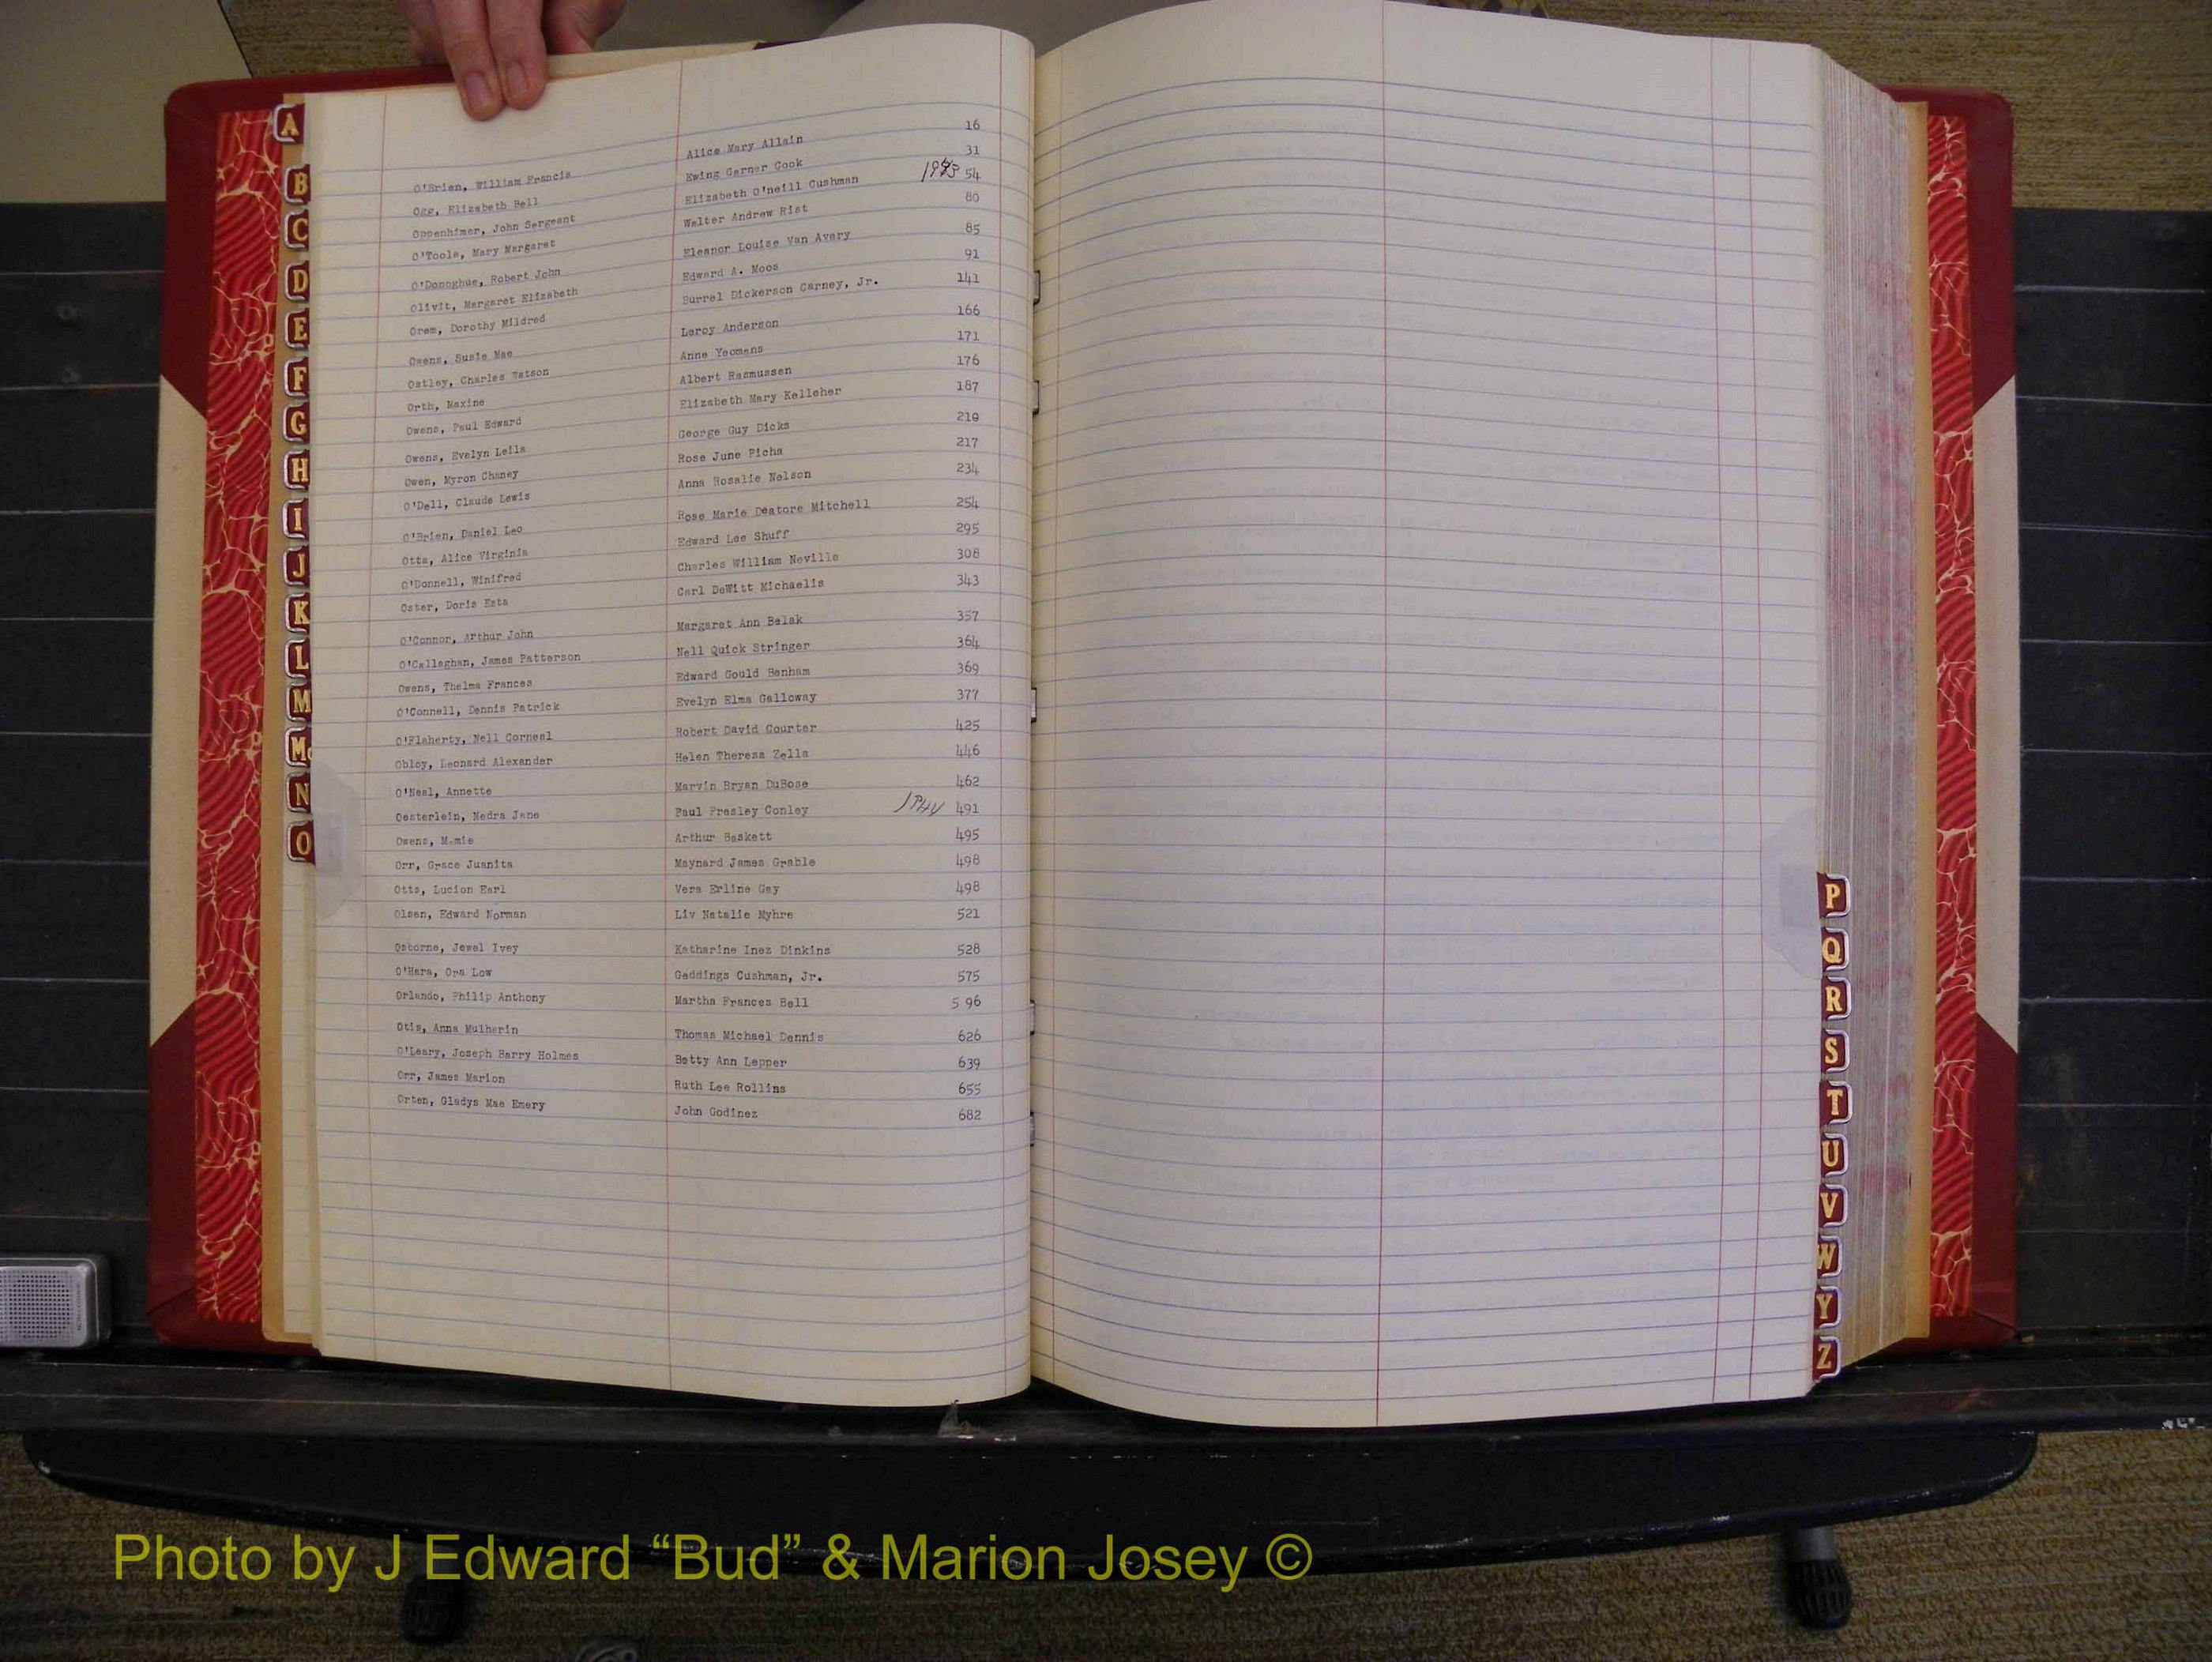 A
B
C
D
E
F
G
H
I
J
K
L
M
Mc
N
O
O'Brien, William Francis Alice Mary Allain 16
Ogg, Elizabeth Bell Ewing Garner Cook 31
Oppenhimer, John Sergeant Elizabeth O'neill Cushman 1943 54
O'Toole, Mary Margaret Walter Andrew Rist 80
O'Donoghue, Robert John Eleanor Louise Van Avery 85
Olivit, Margaret Elizabeth Edward A. Moos 91
Orem, Dorothy Mildred Burrel Dickerson Carney, Jr. 141
Owens, Susie Mae Leroy Anderson 166
Ostley, Charles Watson Anne Yeomans 171
Orth, Maxine Albert Rasmussen 176
Owens, Paul Edward Elizabeth Mary Kelleher 187
Owens, Evelyn Leila George Guy Dicks 210
Owen, Myron Chaney Rose June Picha 217
O'Dell, Claude Lewis Anna Rosalie Nelson 234
O'Brien, Daniel Leo Rose Marie Deatore Mitchell 254
Otts, Alice Virginia Edward Lee Shuff 295
O'Donnell, Winifred Charles William Neville 308
Oster, Doris Esta Carl DeWitt Michaelis 343
O'Connor, Arthur John Margaret Ann Belak 357
O'Callaghan, James Patterson Nell Quick Stringer 364
Owens, Thelma Frances Edward Gould Benham 369
O'Connell, Dennis Patrick Evelyn Elma Galloway 377
O'Flaherty, Nell Corneal Robert David Courter 425
Obloy, Leonard Alexander Helen Theresa Zella 446
O'Neal, Annette Marvin Bryan DuBose 462
Oesterlein, Nedra Jane Paul Presley Conley 491
Owens, Mamie Arthur Baskett 495
Orr, Grace Juanita Maynard James Grable 498
Otts, Lucion Earl Vera Erline Gay 498
Olsen, Edward Norman Liv Natalie Myhre 521
Osborne, Jewel Ivey Katharine Inez Dinkins 528
O'Hara, Ora Low Geddings Cushman, Jr. 575
Orlando, Philip Anthony Martha Frances Bell 596
Otis, Anna Mulherin Thomas Michael Dennis 626
O'Leary, Joseph Barry Holmes Betty Ann Lepper 639
Orr, James Marion Ruth Lee Rollins 655
Orten, Gladys Mae Emery John Godinez 682
P
Q
R
S
T
U
V
W
Y
Z
Photo by J Edward “Bud” & Marion Josey ©